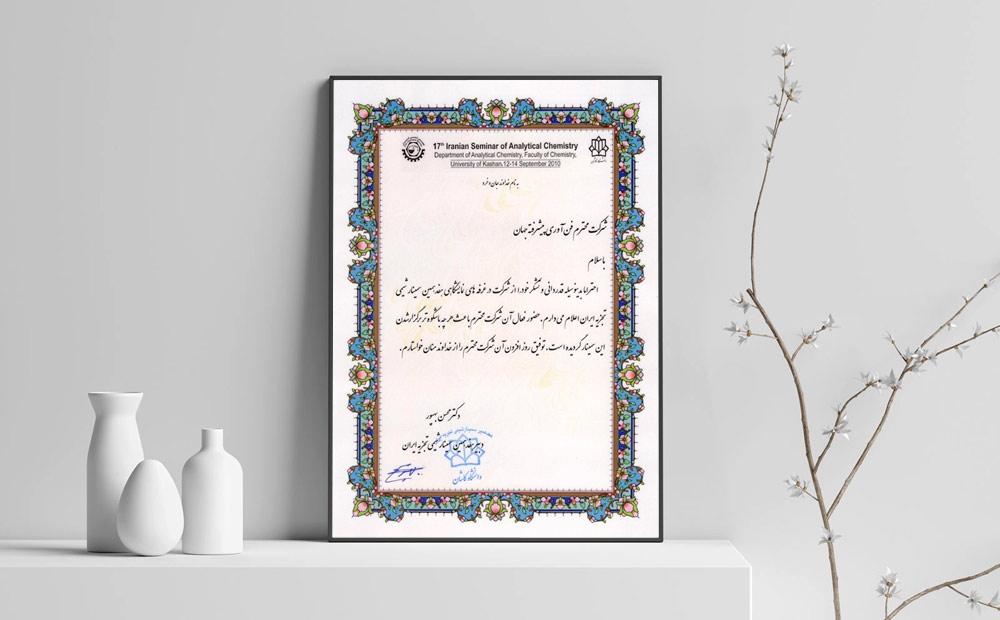 17th Iranian Seminar of Analytical Chemistry
Department of Analytical Chemistry, Faculty of Chemistry,
University of Kashan.12-14 September 2010
به نام خداوند جان و خرد
شرکت محترم فن آوری پیشرفته جهان
باسلام
احتراما بدینوسیله قدردانی و تشکر خود را از شرکت در غرفه های نمایشگاهی هفدهمین سمینار شیمی
تجزیه ایران اعلام می دارم. حضور فعال آن شرکت محترم باعث هر چه باشکوه تر برگزار شدن
این سمینار گردیده است. توفیق روز افزون آن شرکت محترم را از خداوند منان خواستارم.
دکتر محسن بهپور
دبیر هفدهمین سمینار شیمی تجزیه ایران
دانشگاه کاشان